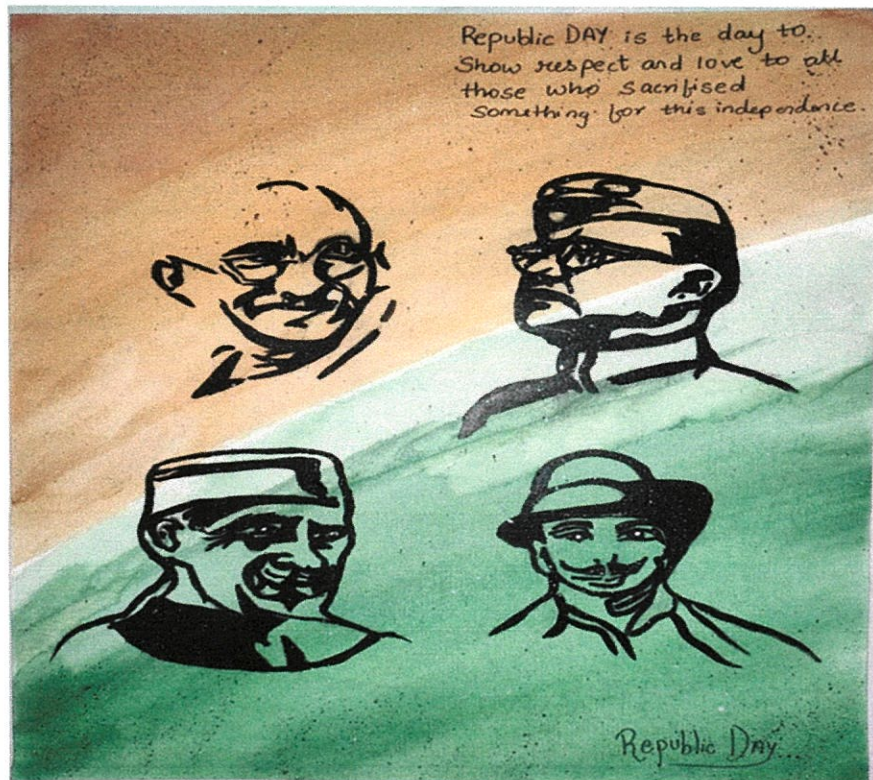 Republic DAY is the day to..
Show respect and love to all
those who sacrifised
Something for this independence.
Republic Day...